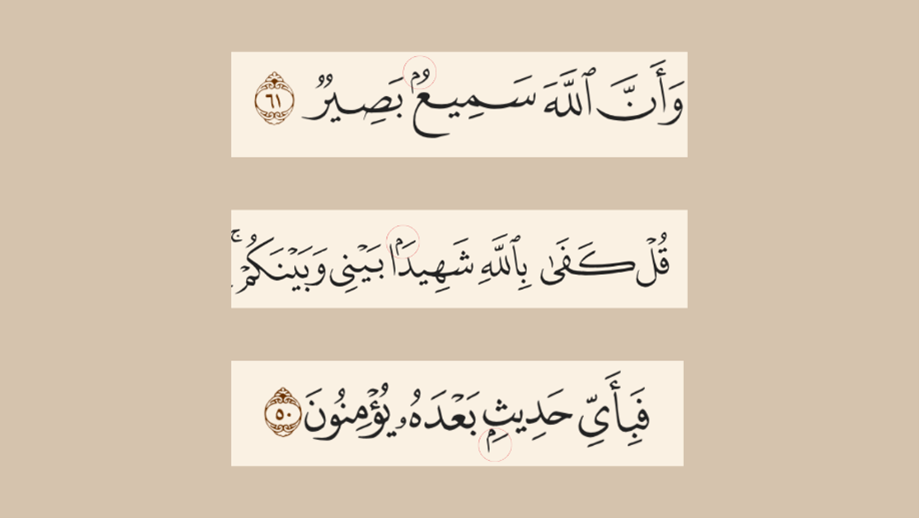 وَأَنَّ ٱللَّهَ سَمِيعُۢ بَصِيرٌ ٦١
قُلۡ كَفَىٰ بِٱللَّهِ شَهِيدَۢا بَيۡنِي وَبَيۡنَكُمۡۚ
فَبِأَيِّ حَدِيثِۭ بَعۡدَهُۥ يُؤۡمِنُونَ ٥٠